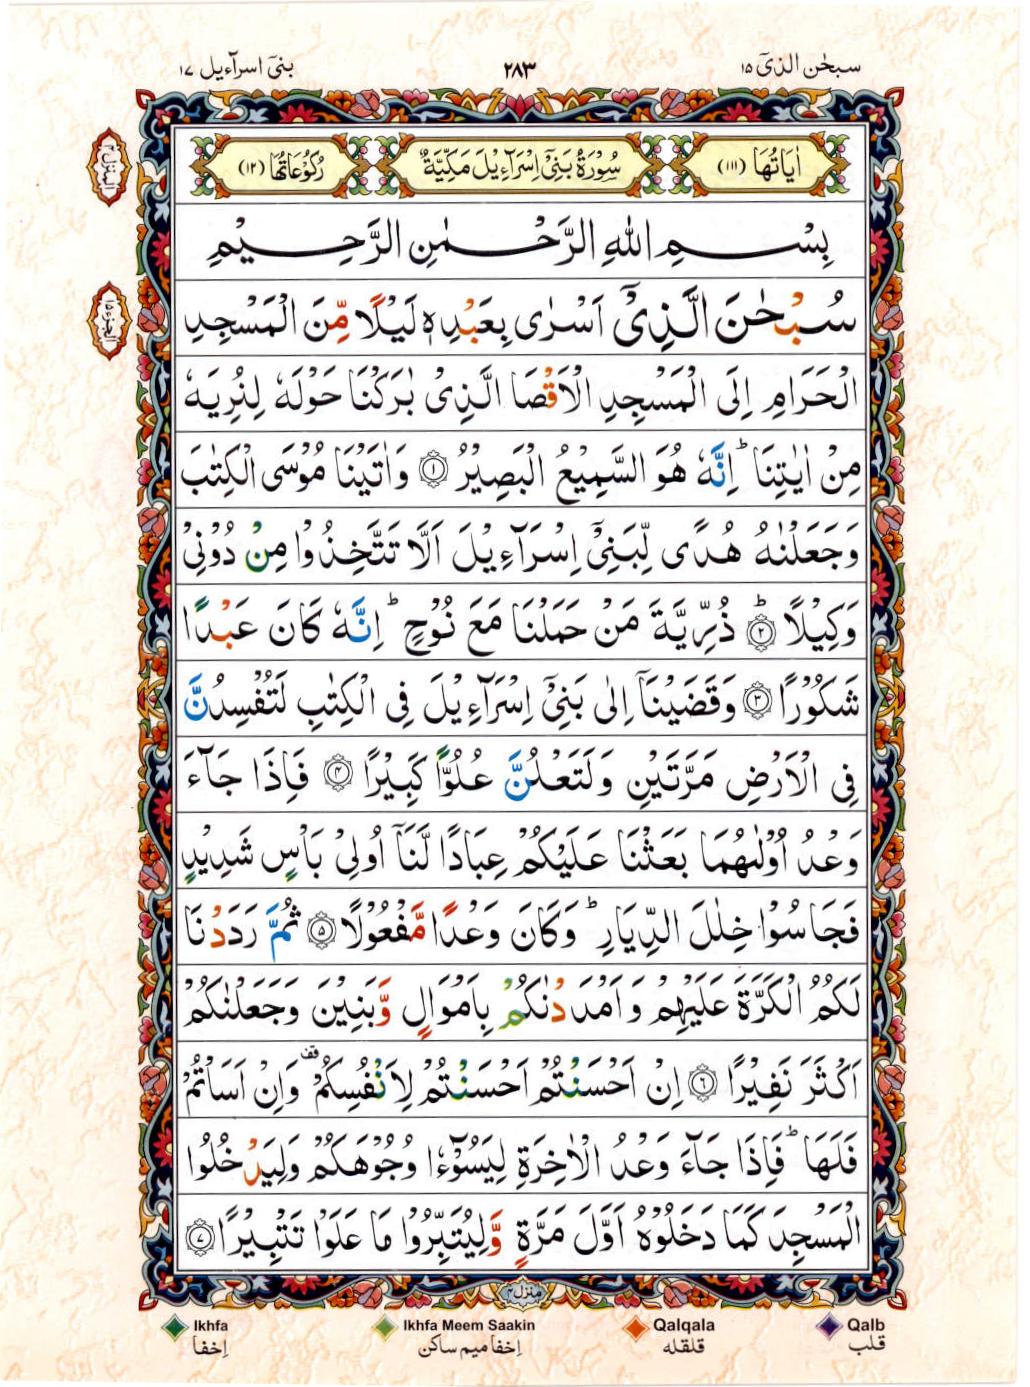 سبحٰن الذیٓ ١٥
٢٨٣
بنیٓ اسرآءیل ١٧
اٰيَاتُهَا (١١١)
سُوْرَةُ بَنِیْٓ اِسْرَآءِيْلَ مَكِّيَّةٌ
رُكُوْعَاتُهَا (١٢)
المنزل ٤
بِسْمِ اللهِ الرَّحْمٰنِ الرَّحِيْمِ
الجزء ١٥
سُبْحٰنَ الَّذِیْٓ اَسْرٰی بِعَبْدِهٖ لَيْلًا مِّنَ الْمَسْجِدِ
الْحَرَامِ اِلَی الْمَسْجِدِ الْاَقْصَا الَّذِیْ بٰرَكْنَا حَوْلَهٗ لِنُرِيَهٗ
مِنْ اٰيٰتِنَا ؕ اِنَّهٗ هُوَ السَّمِيْعُ الْبَصِيْرُ ۝١ وَاٰتَيْنَا مُوْسَی الْكِتٰبَ
وَجَعَلْنٰهُ هُدًی لِّبَنِیْٓ اِسْرَآءِيْلَ اَلَّا تَتَّخِذُوْا مِنْ دُوْنِیْ
وَكِيْلًا ۝٢ؕ ذُرِّيَّةَ مَنْ حَمَلْنَا مَعَ نُوْحٍ ؕ اِنَّهٗ كَانَ عَبْدًا
شَكُوْرًا ۝٣ وَقَضَيْنَآ اِلٰی بَنِیْٓ اِسْرَآءِيْلَ فِی الْكِتٰبِ لَتُفْسِدُنَّ
فِی الْاَرْضِ مَرَّتَيْنِ وَلَتَعْلُنَّ عُلُوًّا كَبِيْرًا ۝٤ فَاِذَا جَآءَ
وَعْدُ اُوْلٰىهُمَا بَعَثْنَا عَلَيْكُمْ عِبَادًا لَّنَآ اُولِیْ بَاْسٍ شَدِيْدٍ
فَجَاسُوْا خِلٰلَ الدِّيَارِ ؕ وَكَانَ وَعْدًا مَّفْعُوْلًا ۝٥ ثُمَّ رَدَدْنَا
لَكُمُ الْكَرَّةَ عَلَيْهِمْ وَاَمْدَدْنٰكُمْ بِاَمْوَالٍ وَّبَنِيْنَ وَجَعَلْنٰكُمْ
اَكْثَرَ نَفِيْرًا ۝٦ اِنْ اَحْسَنْتُمْ اَحْسَنْتُمْ لِاَنْفُسِكُمْ قف وَاِنْ اَسَاْتُمْ
فَلَهَا ؕ فَاِذَا جَآءَ وَعْدُ الْاٰخِرَةِ لِيَسُوْٓءٗا وُجُوْهَكُمْ وَلِيَدْخُلُوا
الْمَسْجِدَ كَمَا دَخَلُوْهُ اَوَّلَ مَرَّةٍ وَّلِيُتَبِّرُوْا مَا عَلَوْا تَتْبِيْرًا ۝٧
منزل ٤
Ikhfa Ikhfa Meem Saakin Qalqala Qalb
اِخفا اِخفا میم ساکن قلقله قلب